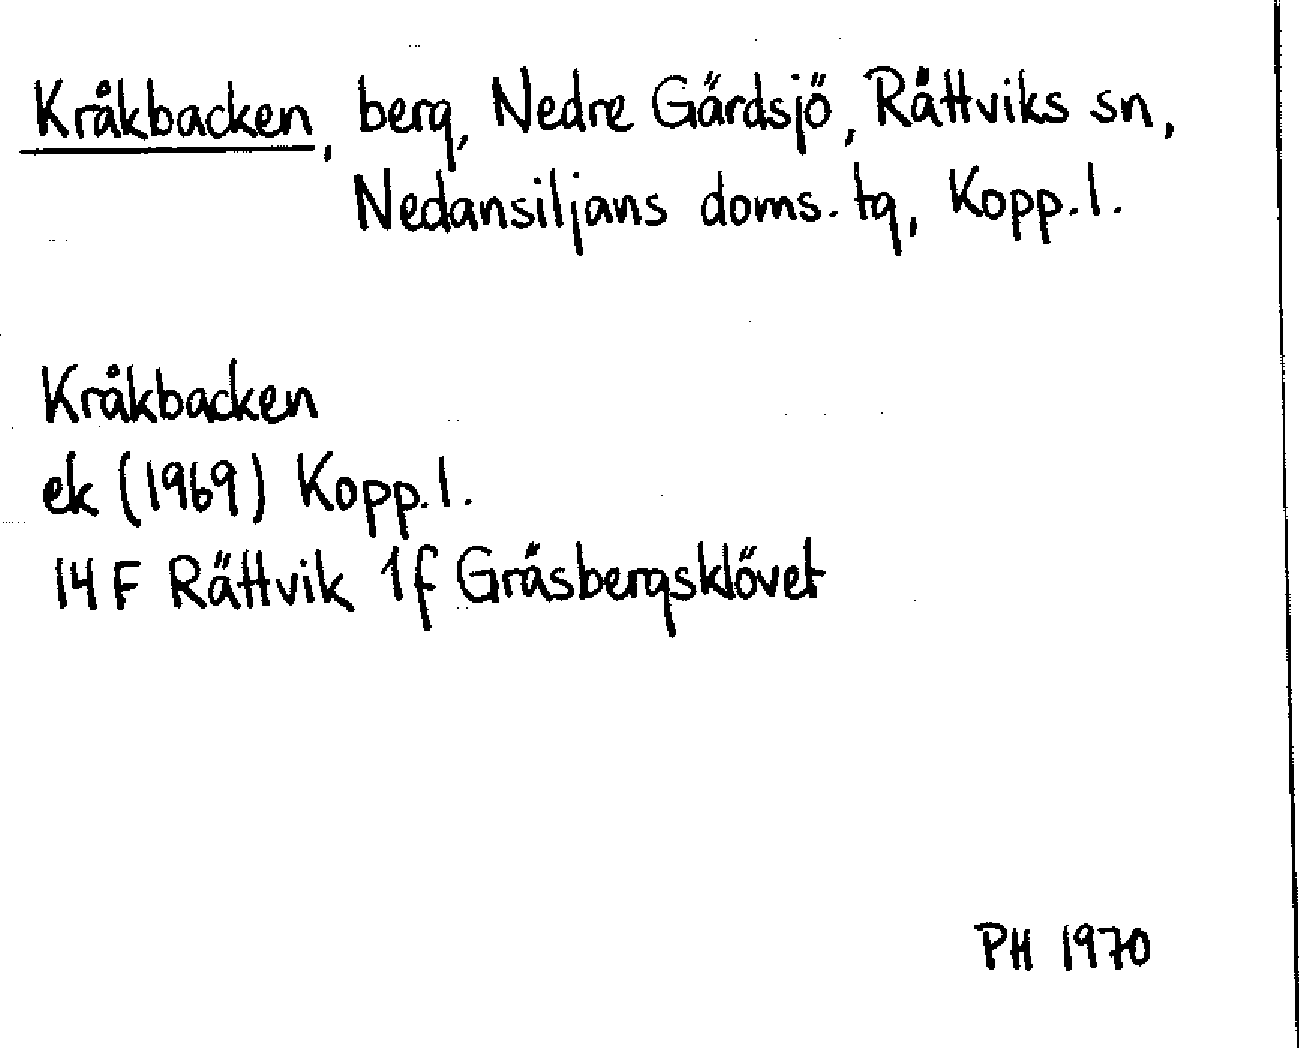 Kråkbacken, berg, Nedre Gärdsjö, Rättviks sn,
Nedansiljans doms. tg, Kopp. l.
Kråkbacken
ek (1969) Kopp. l.
14 F Rättvik 1f Gräsbergsklövet
PH 1970